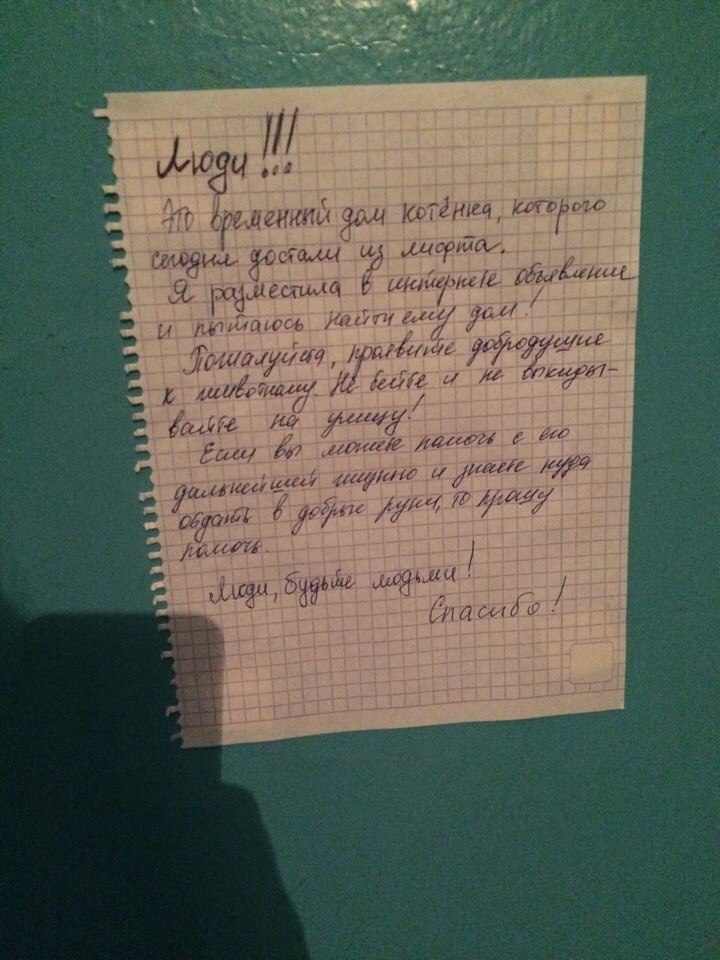 Люди!!!
Это временный дом котёнка, которого
сегодня достали из лифта.
Я разместила в интернете объявление
и пытаюсь найти ему дом!
Пожалуйста, проявите добродушие
к животному. Не бейте и не выкиды-
вайте на улицу!
Если вы можете помочь с его
дальнейшей жизнью и знаете куда
отдать в добрые руки, то прошу
помочь.
Люди, будьте людьми!
Спасибо!